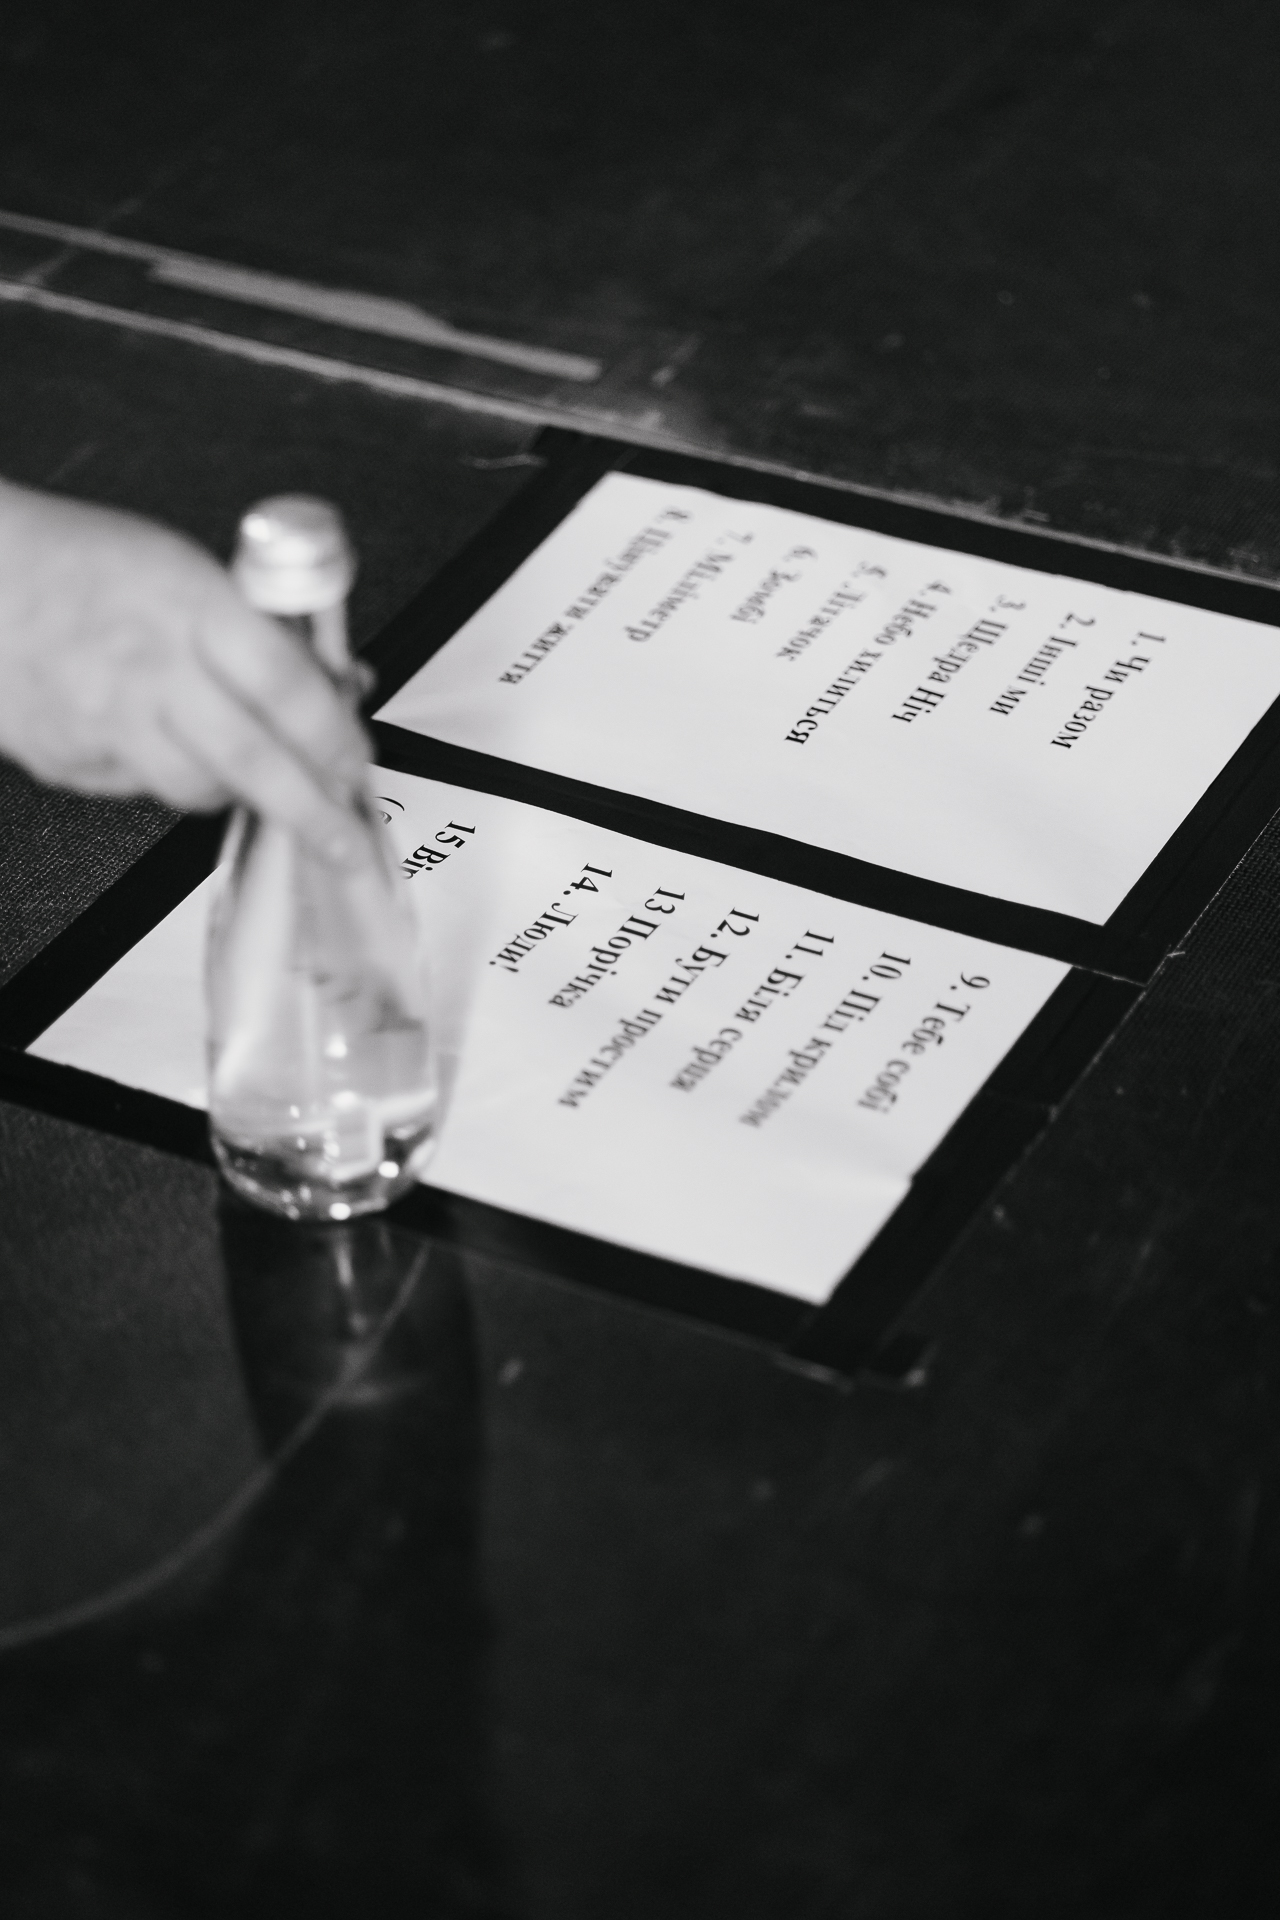 1. Чи разом
2. Інші ми
3. Щедра Ніч
4. Небо хилиться
5. Літачок
6. Зомбі
7. Міліметр
8. жити життя
9. Тебе собі
10. Під крилом
11. Біля серця
12. Бути простим
13 Порічка
14. Люди!
15